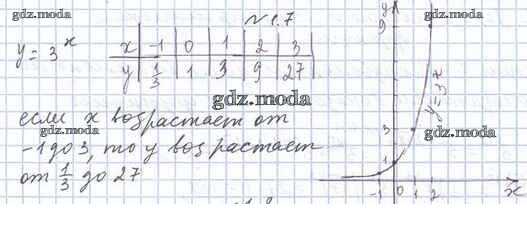 № 1.7
y = 3^x
x | -1 | 0 | 1 | 2 | 3
y | 1/3 | 1 | 3 | 9 | 27
если x возрастает от
-1 до 3, то y возрастает
от 1/3 до 27
y
9
3
1
-1 0 1 2 x
y=3^x
gdz.moda
gdz.moda
gdz.moda
gdz.moda
gdz.moda
gdz.moda